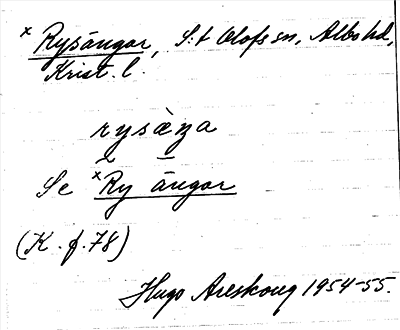 × Rysängar, S:t Olofs sn, Albo hd,
Krist. l.
rysæŋa
Se × Ry ängar
(K. f. 78)
Hugo Areskoug 1954-55.